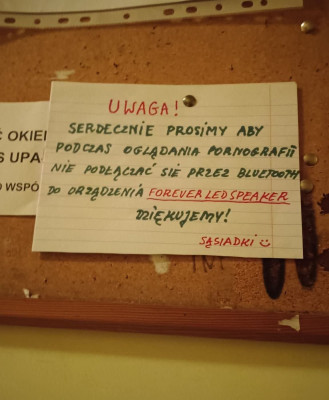 UWAGA!
SERDECZNIE PROSIMY ABY
PODCZAS OGLĄDANIA PORNOGRAFII
NIE PODŁĄCZAĆ SIĘ PRZEZ BLUETOOTH
DO URZĄDZENIA FOREVER LED SPEAKER
DZIĘKUJEMY!
SĄSIADKI
Ć OKIE
S UPA
O WSPÓ